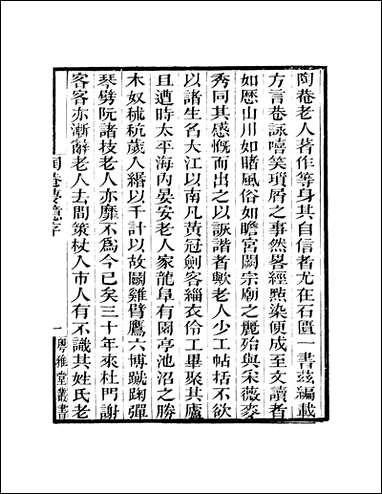 陶菴老人著作等身其自信者尤在石匱一書茲編載
方言巷詠嘻笑瑣屑之事然畧經點染便成至文讀者
如歷山川如睹風俗如瞻宮闕宗廟之麗殆與采薇麥
秀同其感慨而出之以詼諧者歟老人少工帖括不欲
以諸生名大江以南凡黃冠劍客緇衣伶工畢聚其廬
且遭時太平海內晏安老人家龍阜有園亭池沼之勝
木奴秫秔歲入緡以千計以故鬬雞臂鷹六博蹴踘彈
琴劈阮諸技老人亦靡不為今已矣三十年來杜門謝
客客亦漸辭老人去間策杖入市人有不識其姓氏老
陶菴夢憶序
一
粵雅堂叢書